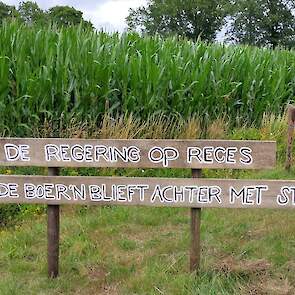 DE REGERING OP RECES
DE BOER'N BLIEFT ACHTER MET